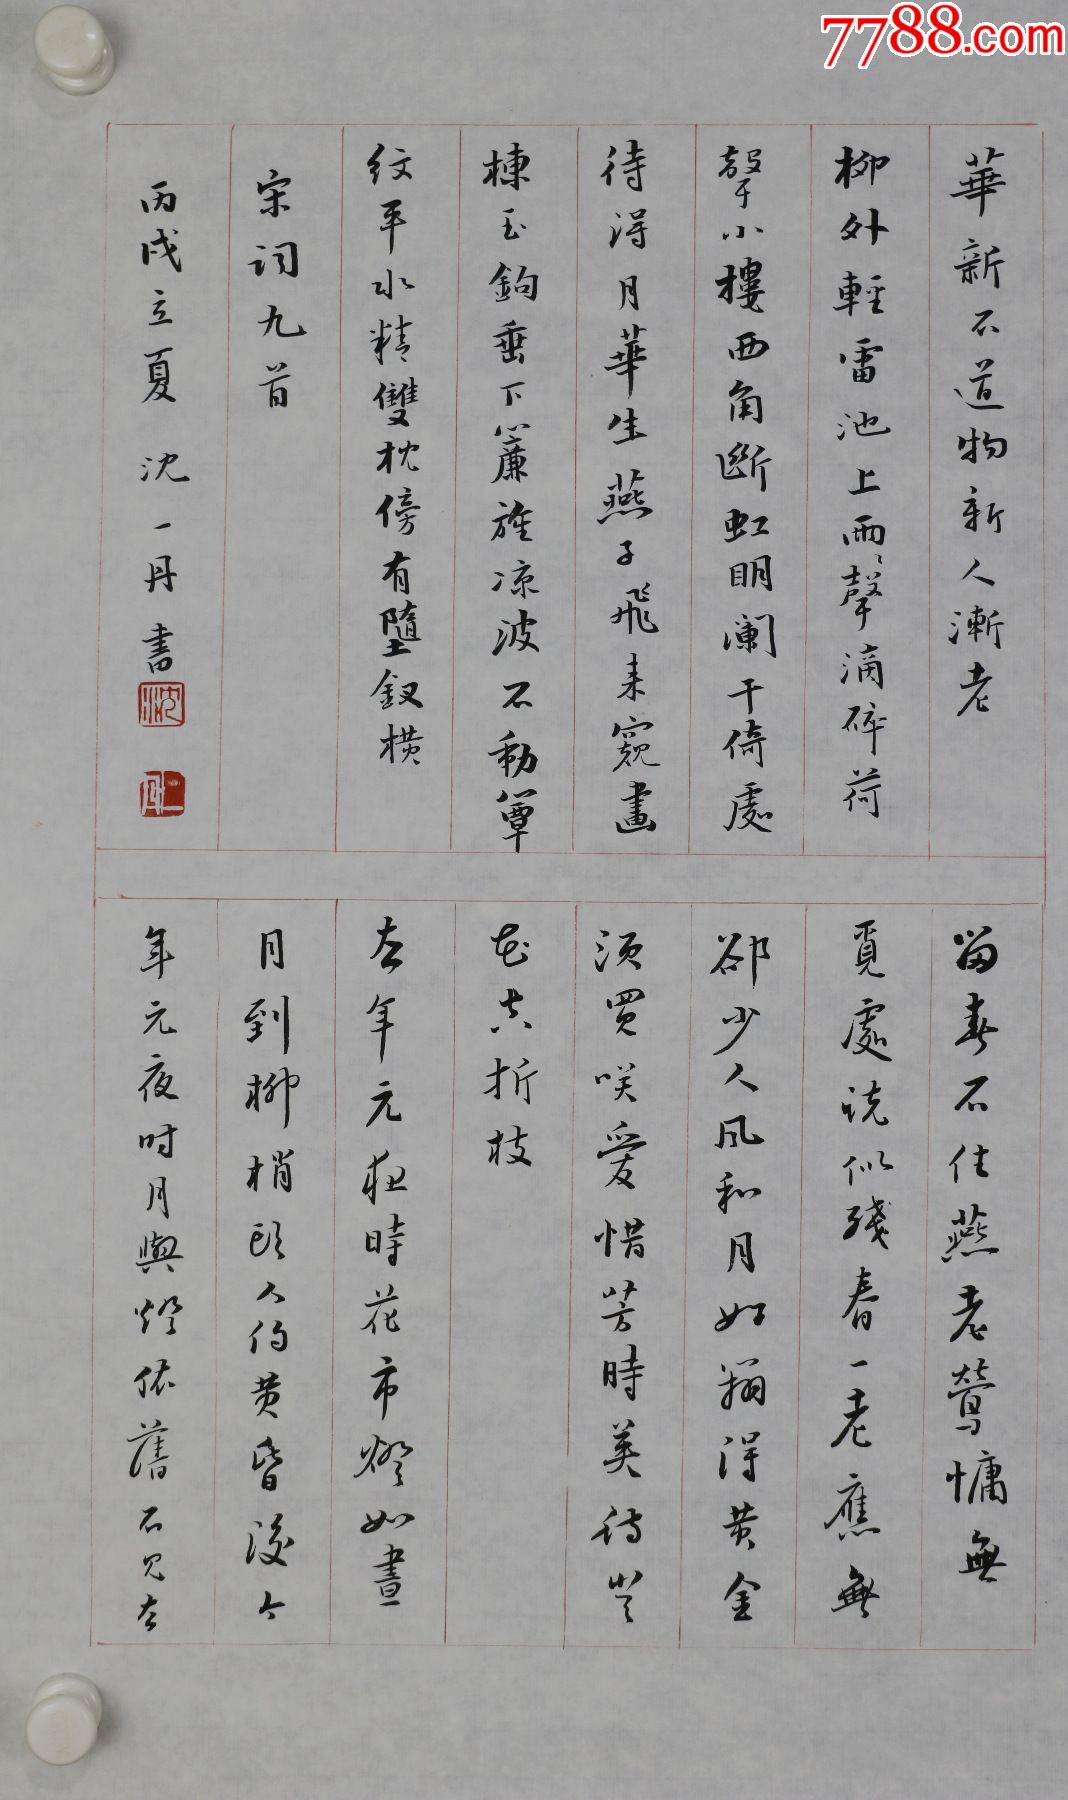 7788.com
華新不道物新人漸老
柳外輕雷池上雨〻聲滴碎荷
聲小樓西角斷虹明闌干倚處
待得月華生燕子飛來窺畫
棟玉鉤垂下簾旌凉波不動簟
紋平水精雙枕傍有墮釵橫
宋詞九首
丙戌立夏 沈一丹書
沈
一丹
留春不住燕老鶯慵無
覓處說似殘春一老應無
卻少人風和月好辦得黃金
須買笑愛惜芳時莫待無
花空折枝
去年元夜時花市燈如晝
月到柳梢頭人約黃昏後今
年元夜時月與燈依舊不見去